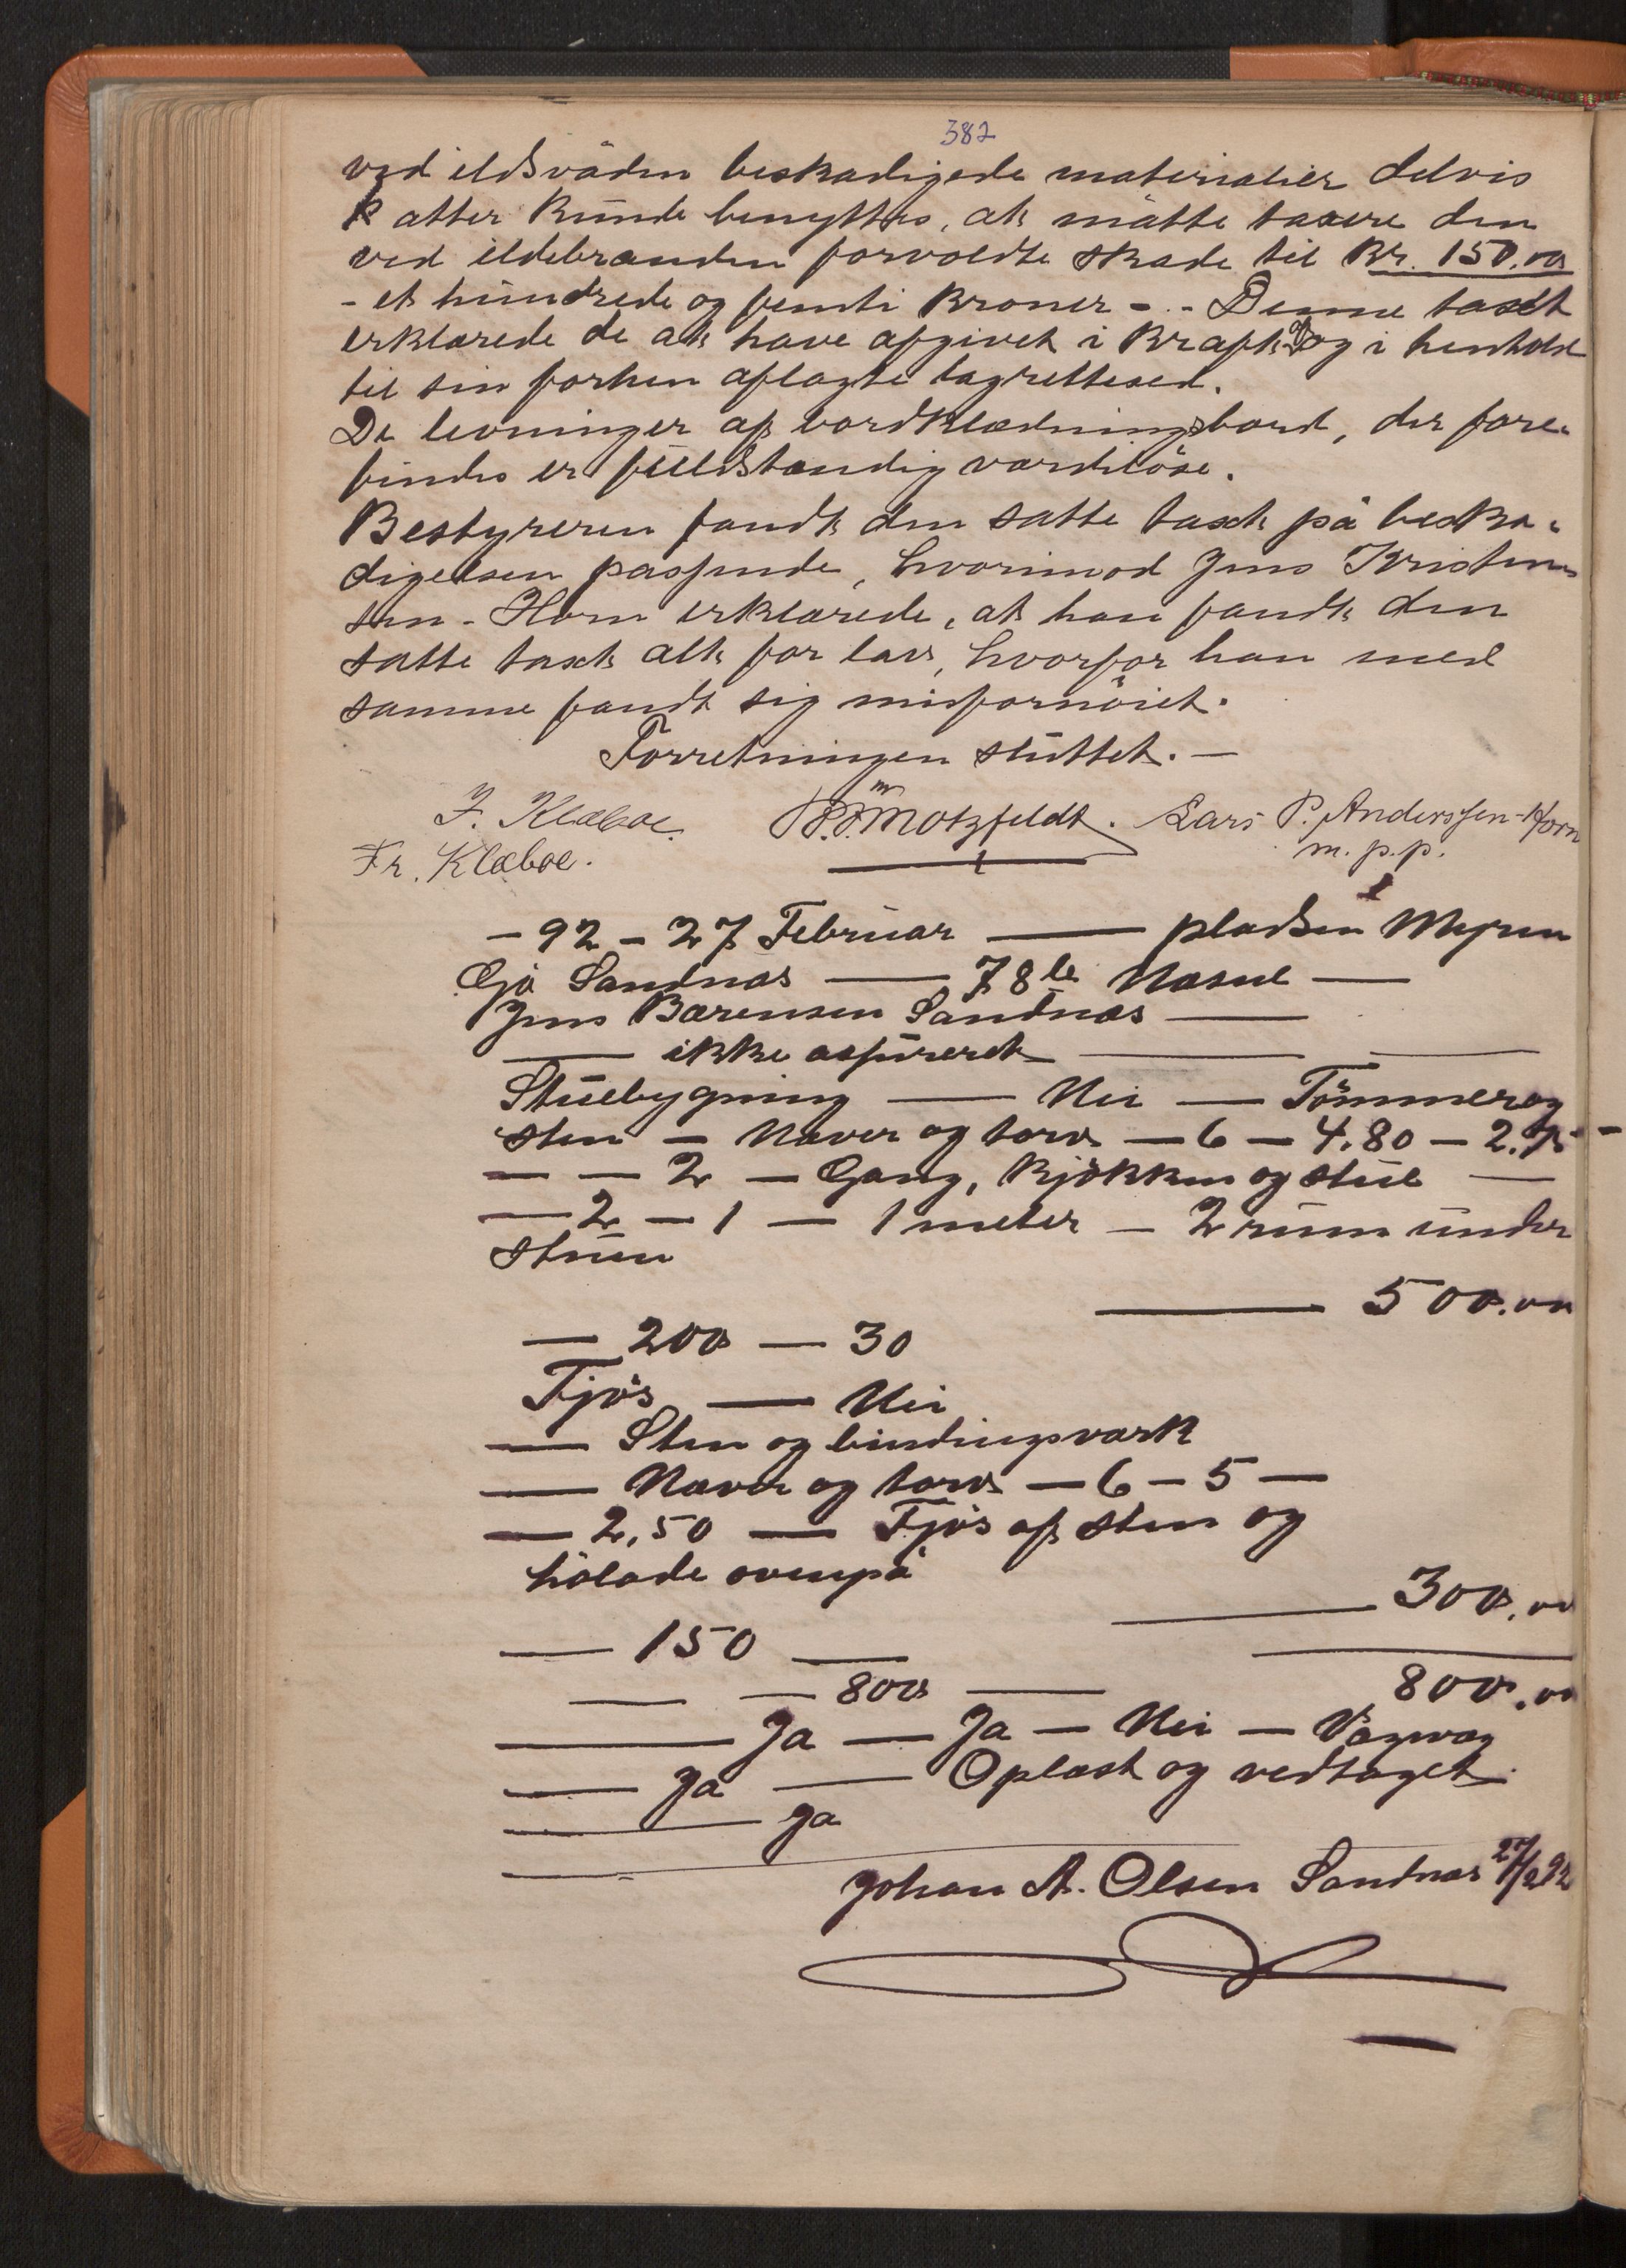 382
ved ildsvåden beskadigede materialier delvis
atter kunde benyttes, at måtte taxere den
ved ildebranden forvoldte skade til Kr. 150.00
- et hundrede og femti Kroner - - Denne taxt
erklærede de at have afgivet i Kraft og i henhold
til sin forhen aflagte lagrettesed.
De levninger af bordklædningsbord, der fore-
findes er fuldstændig værdiløse.
Bestyreren fandt den satte taxt på beska-
digelsen passende, hvorimod Jens Kristen-
sen-Horn erklærede, at han fandt den
satte taxt alt for lav, hvorfor han med
samme fandt sig misfornöiet.
Forretningen sluttet. —
J. Klæboe. P. Motzfeldt. Lars P. Anderssen-Horn
Fr. Klæboe. m. p. p.
- 92 - 27 Februar — pladsen Myren
Sandnæs — 78 Næsne —
Jens Bærensen Sandnæs —
— ikke assureret — —
Stuebygning — Nei — Tömmer og
sten — Næver og torv — 6 — 4.80 — 2.75 —
— — 2 — Gang, Kjökken og stue —
— 2 — 1 — 1 meter — 2 rum under
stuen
— 500.00
— 200 — 30
Fjös — Nei
— Sten og bindingsværk
— Næver og torv — 6 — 5 —
— 2,50 — Fjös af sten og
hölade ovenpå
— 300.00
— 150 —
— — 800 — 800.00
— Ja — Ja — Nei — Vågvåg
— Ja — Oplæst og vedtaget.
— Ja
—
Johan A. Olsen Sandnæs 27/2 92